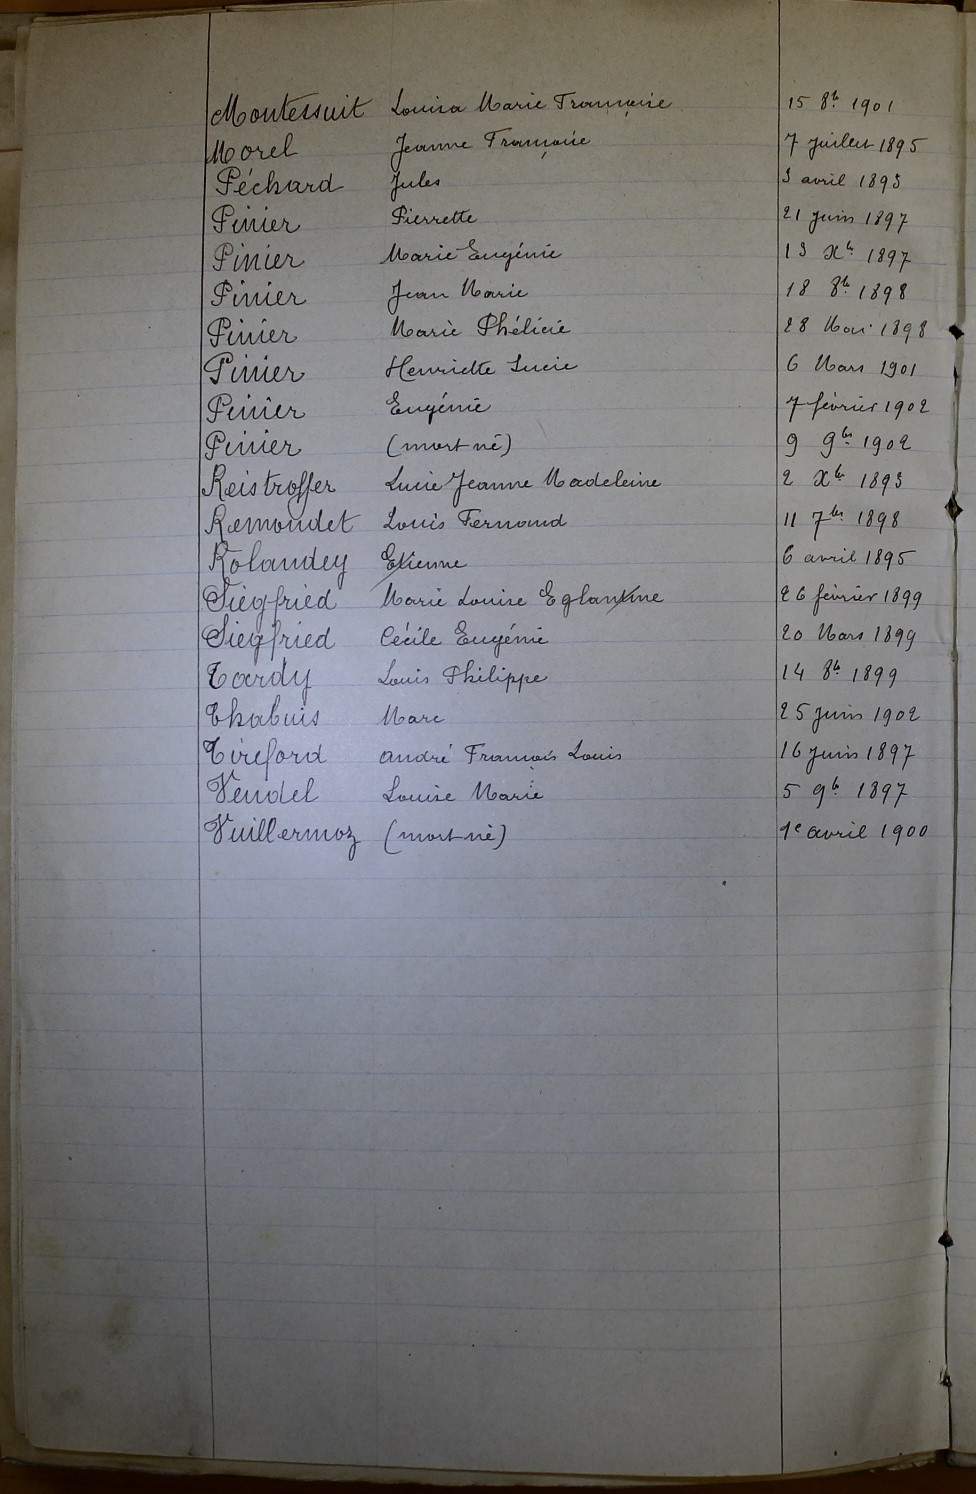 Montessuit Louisa Marie Françoise 15 8bre 1901
Morel Jeanne Françoise 7 juillet 1895
Péchard Jules 3 avril 1893
Pinier Pierrette 21 juin 1897
Pinier Marie Eugénie 13 Xbre 1897
Pinier Jean Marie 18 8bre 1898
Pinier Marie Phélicie 28 Mai 1898
Pinier Henriette Lucie 6 Mars 1901
Pinier Eugénie 7 février 1902
Pinier (mort né) 9 9bre 1902
Reistroffer Lucie Jeanne Madeleine 2 Xbre 1893
Remondet Louis Fernand 11 7bre 1898
Rolandey Etienne 6 avril 1895
Siegfried Marie Louise Eglantine 26 février 1899
Siegfried Cécile Eugénie 20 Mars 1899
Tardy Louis Philippe 14 8bre 1899
Thabuis Marc 25 juin 1902
Tireford André François Louis 16 juin 1897
Vendel Louise Marie 5 9bre 1897
Vuillermoz (mort né) 1e avril 1900